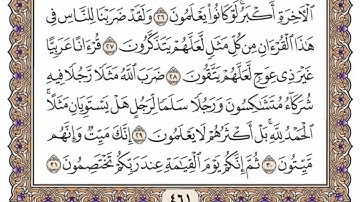 ٱلْأٓخِرَةِ أَكْبَرُۚ لَوْ كَانُوا۟ يَعْلَمُونَ ٢٦ وَلَقَدْ ضَرَبْنَا لِلنَّاسِ فِى
هَٰذَا ٱلْقُرْءَانِ مِن كُلِّ مَثَلٍ لَّعَلَّهُمْ يَتَذَكَّرُونَ ٢٧ قُرْءَانًا عَرَبِيًّا
غَيْرَ ذِى عِوَجٍ لَّعَلَّهُمْ يَتَّقُونَ ٢٨ ضَرَبَ ٱللَّهُ مَثَلًا رَّجُلًا فِيهِ
شُرَكَآءُ مُتَشَٰكِسُونَ وَرَجُلًا سَلَمًا لِّرَجُلٍ هَلْ يَسْتَوِيَانِ مَثَلًاۚ
ٱلْحَمْدُ لِلَّهِۚ بَلْ أَكْثَرُهُمْ لَا يَعْلَمُونَ ٢٩ إِنَّكَ مَيِّتٌ وَإِنَّهُم
مَّيِّتُونَ ٣٠ ثُمَّ إِنَّكُمْ يَوْمَ ٱلْقِيَٰمَةِ عِندَ رَبِّكُمْ تَخْتَصِمُونَ ٣١
٤٦١